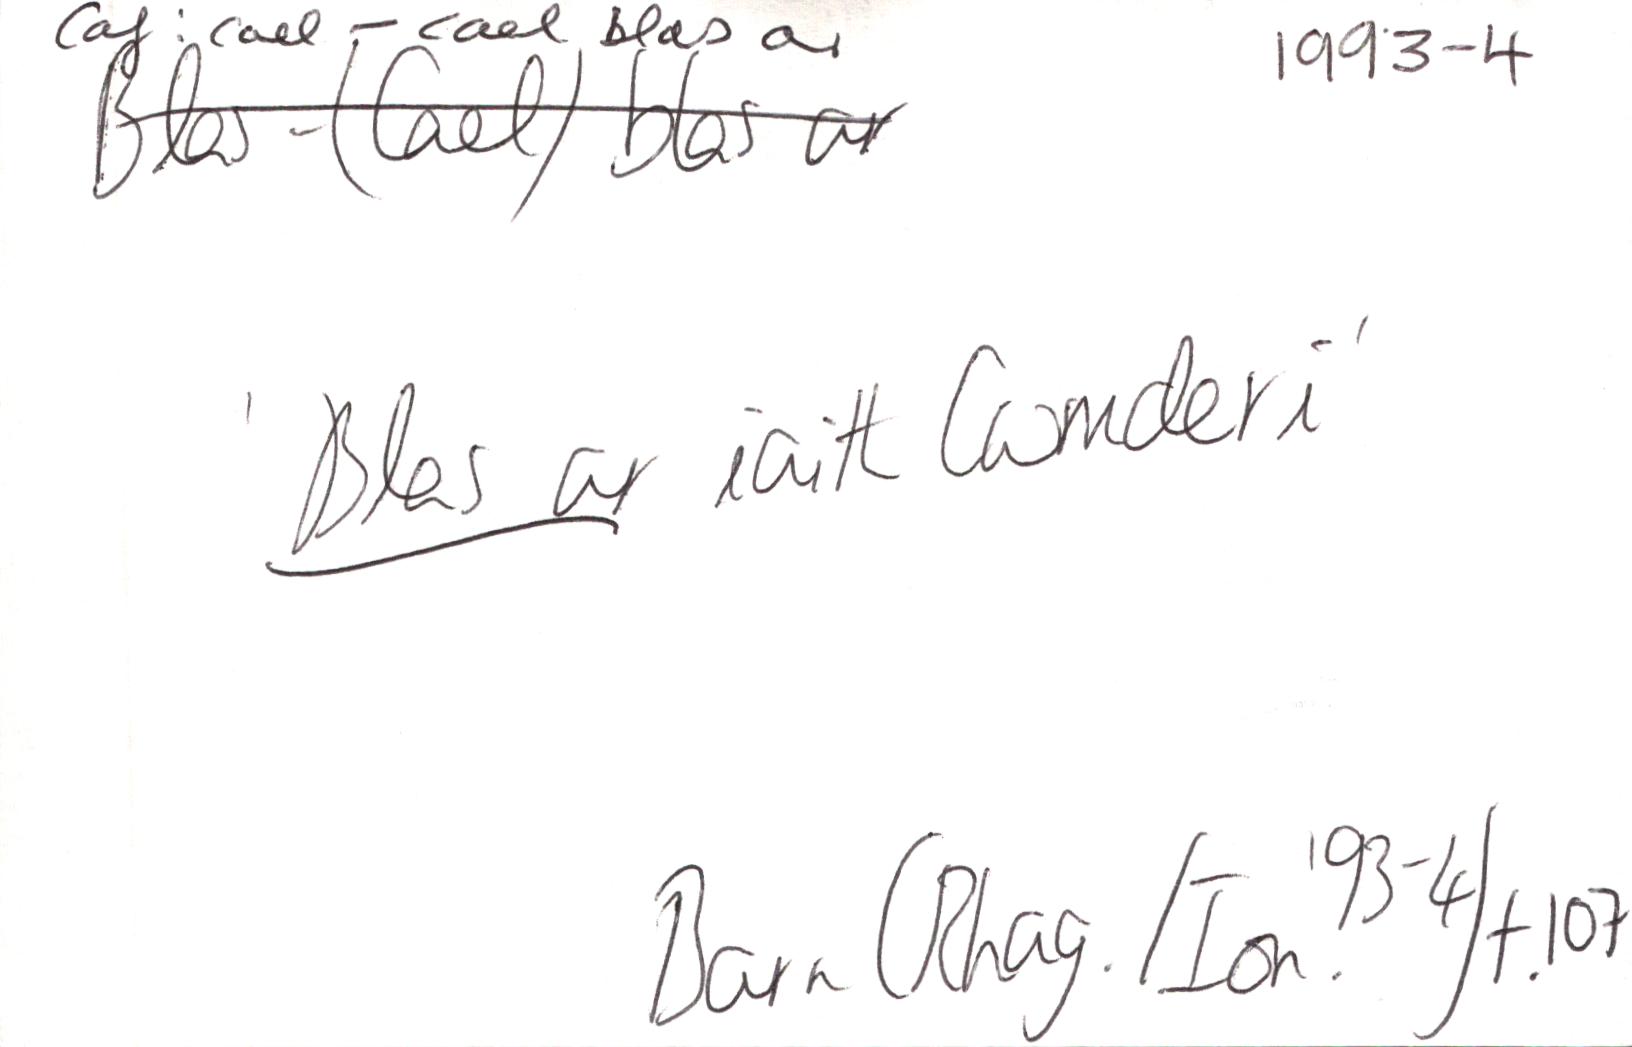 Caf: cael – cael blas ar
1993-4
Blas - (Cael) blas ar
'Blas ar iaith Cwmderi'
Barn (Rhag./Ion. '93-4) t.107